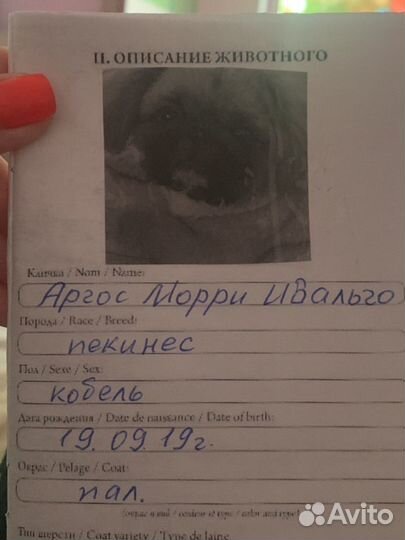 II. ОПИСАНИЕ ЖИВОТНОГО
Кличка / Nom / Name:
Аргос Морри Ивальго
Порода / Race / Breed:
пекинес
Пол / Sexe / Sex:
кобель
Дата рождения / Date de naissance / Date of birth:
19.09.19г.
Окрас / Pelage / Coat:
пал.
Тип шерсти / Coat variety / Type de laine
Avito